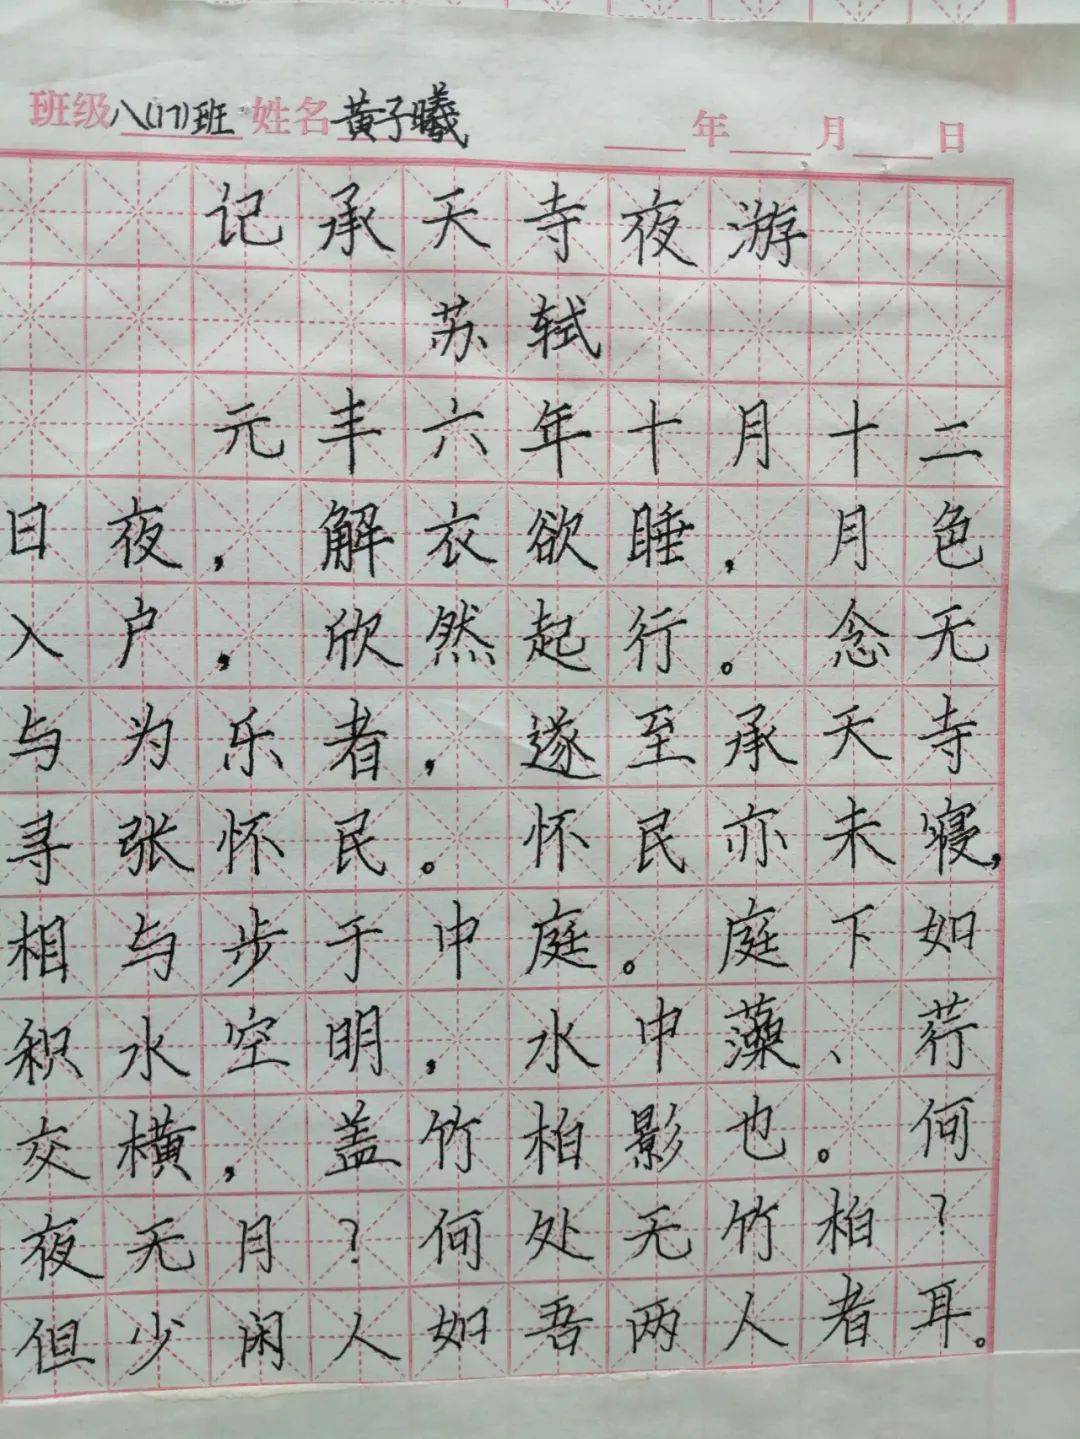 班级八(17)班 姓名黄子曦 年 月 日
记承天寺夜游
苏轼
元丰六年十月十二
日夜，解衣欲睡，月色
入户，欣然起行。念无
与为乐者，遂至承天寺
寻张怀民。怀民亦未寝，
相与步于中庭。庭下如
积水空明，水中藻、荇
交横，盖竹柏影也。何
夜无月？何处无竹柏？
但少闲人如吾两人者耳。